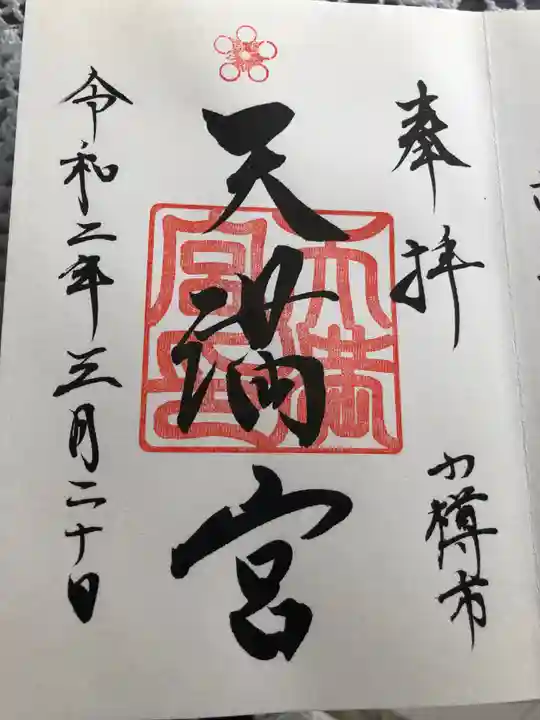 奉拝
小樽市
天満宮
天満宮印
令和二年三月二十日